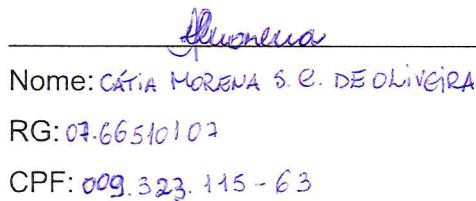 Nome: CÁTIA MORENA S. C. DE OLIVEIRA
RG: 07.66510107
CPF: 009.323.115-63